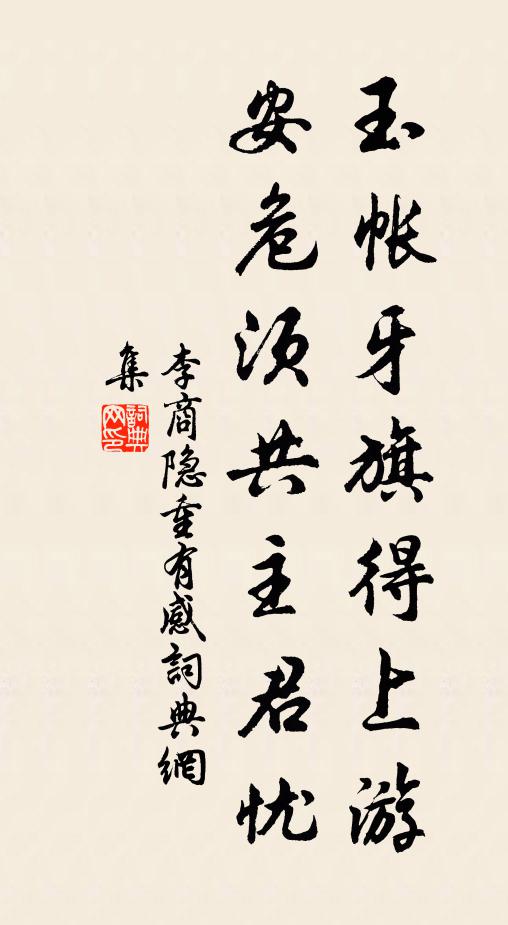 玉帐牙旗得上游
安危须共主君忧
李商隐重有感詞典網
集
詞典网印